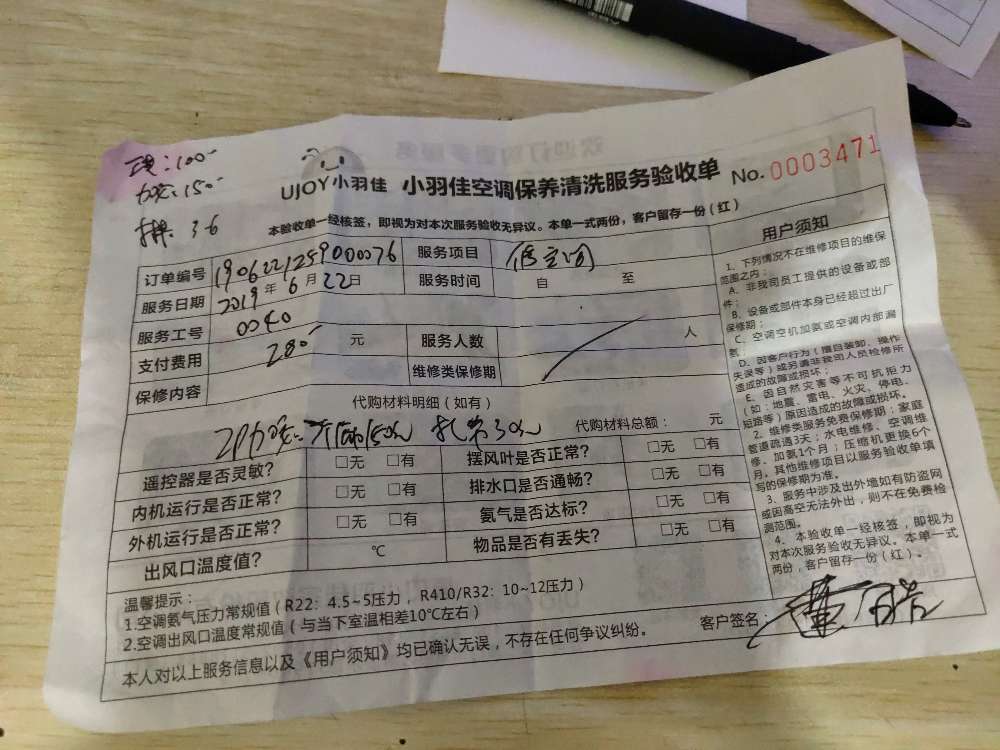 :100-
:150-
UJOY小羽佳 小羽佳空调保养清洗服务验收单 No.0003471
本验收单一经核签，即视为对本次服务验收无异议。本单一式两份，客户留存一份（红）
订单编号 190622125900076 服务项目 修空调
服务日期 2019年6月22日 服务时间 自 至
服务工号 0040
支付费用 280 元 服务人数 人
保修内容 维修类保修期
代购材料明细（如有）
代购材料总额： 元
遥控器是否灵敏？ □无 □有 摆风叶是否正常？ □无 □有
内机运行是否正常？ □无 □有 排水口是否通畅？ □无 □有
外机运行是否正常？ □无 □有 氨气是否达标？ □无 □有
出风口温度值？ ℃ 物品是否有丢失？ □无 □有
温馨提示：
1.空调氨气压力常规值（R22：4.5~5压力，R410/R32：10~12压力）
2.空调出风口温度常规值（与当下室温相差10℃左右）
客户签名：
本人对以上服务信息以及《用户须知》均已确认无误，不存在任何争议纠纷。
用户须知
1、下列情况不在维修项目的维保
范围之内：
A、非我司员工提供的设备或部
件；
B、设备或部件本身已经超过出厂
保修期；
C、空调空机加氨或空调内部漏
氨；
D、因客户行为（擅自装卸、操作
失误等）或另请非我司人员检修所
造成的故障或损坏；
E、因自然灾害等不可抗拒力
（如：地震、雷电、火灾、停电、
短路等）原因造成的故障或损坏。
2、维修类服务免费保修期：家庭
管道疏通3天；水电维修、空调维
修、加氨1个月；压缩机更换6个
月。其他维修项目以服务验收单填
写的保修期为准。
3、服务中涉及出外墙如有防盗网
或因高空无法外出，则不在免费检
测范围。
4、本验收单一经核签，即视为
对本次服务验收无异议。本单一式
两份，客户留存一份（红）。